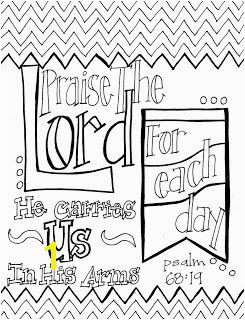 Praise The
Lord
For
each
day
He Carries
Us
1
In His Arms
psalm
68:19